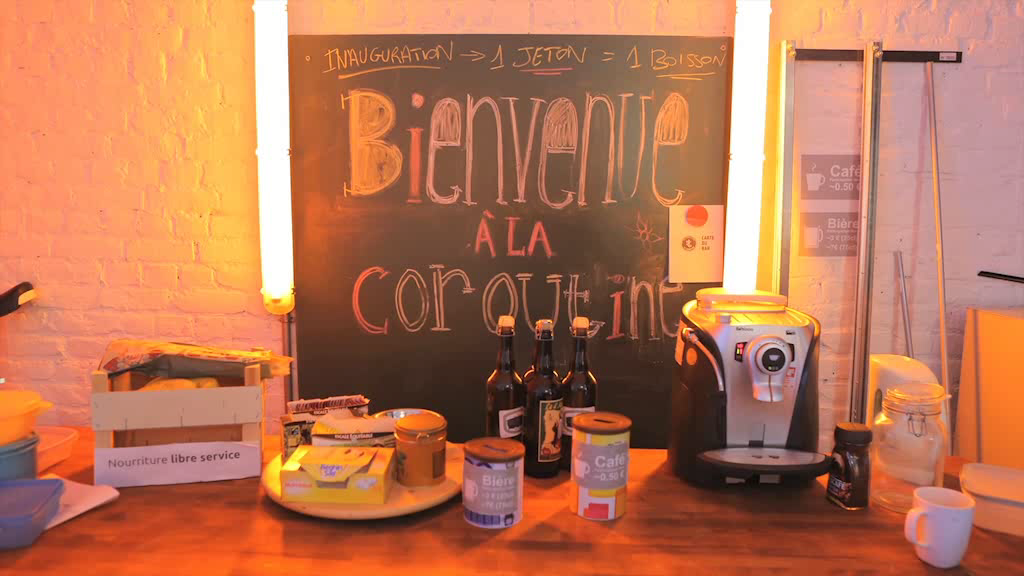 INAUGURATION → 1 JETON = 1 BOISSON
Bienvenue
À LA
Coroutine
CARTE
DU
BAR
Café
~0.50 €
Bière
Nourriture libre service
Bière
Café
~0.50